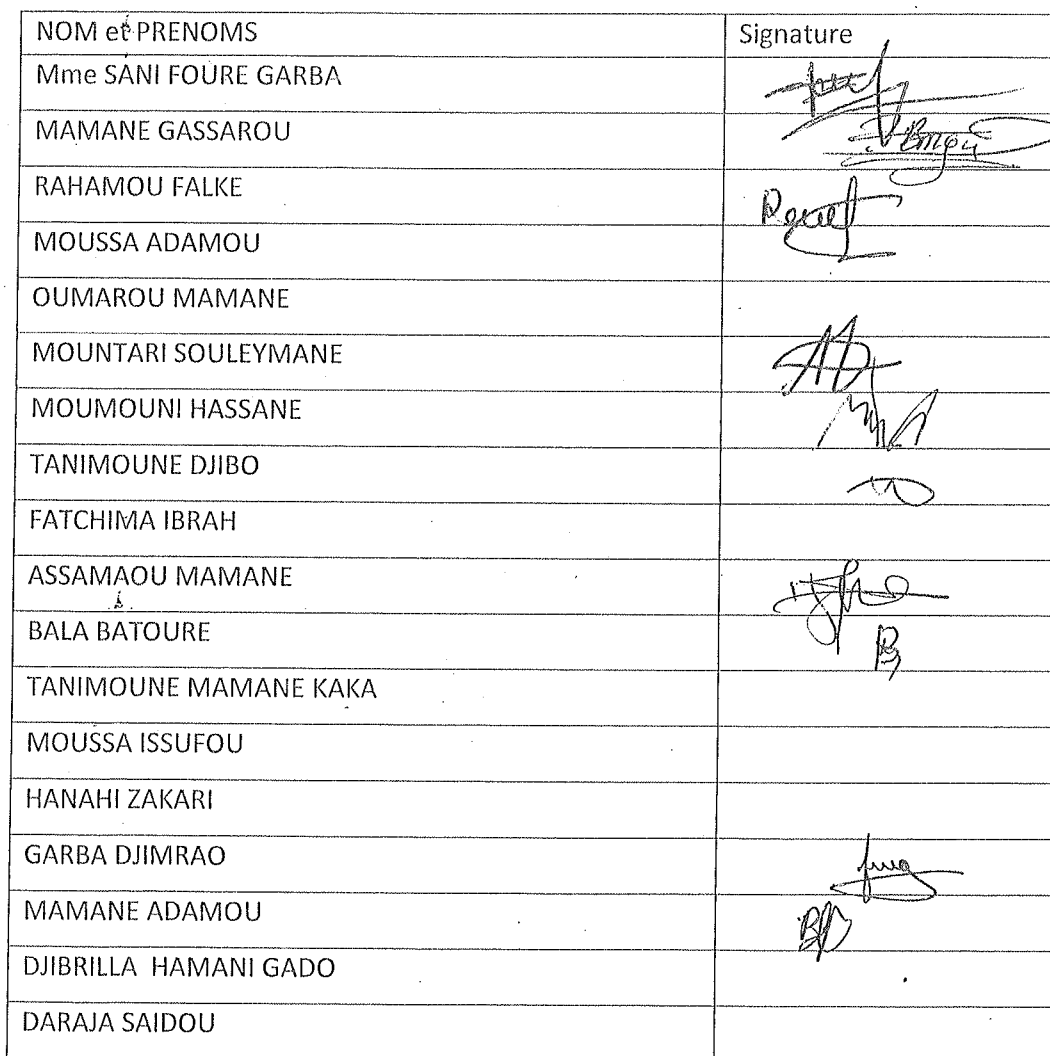 NOM et PRENOMS Signature
Mme SANI FOURE GARBA
MAMANE GASSAROU
RAHAMOU FALKE
MOUSSA ADAMOU
OUMAROU MAMANE
MOUNTARI SOULEYMANE
MOUMOUNI HASSANE
TANIMOUNE DJIBO
FATCHIMA IBRAH
ASSAMAOU MAMANE
BALA BATOURE
TANIMOUNE MAMANE KAKA
MOUSSA ISSUFOU
HANAHI ZAKARI
GARBA DJIMRAO
MAMANE ADAMOU
DJIBRILLA HAMANI GADO
DARAJA SAIDOU